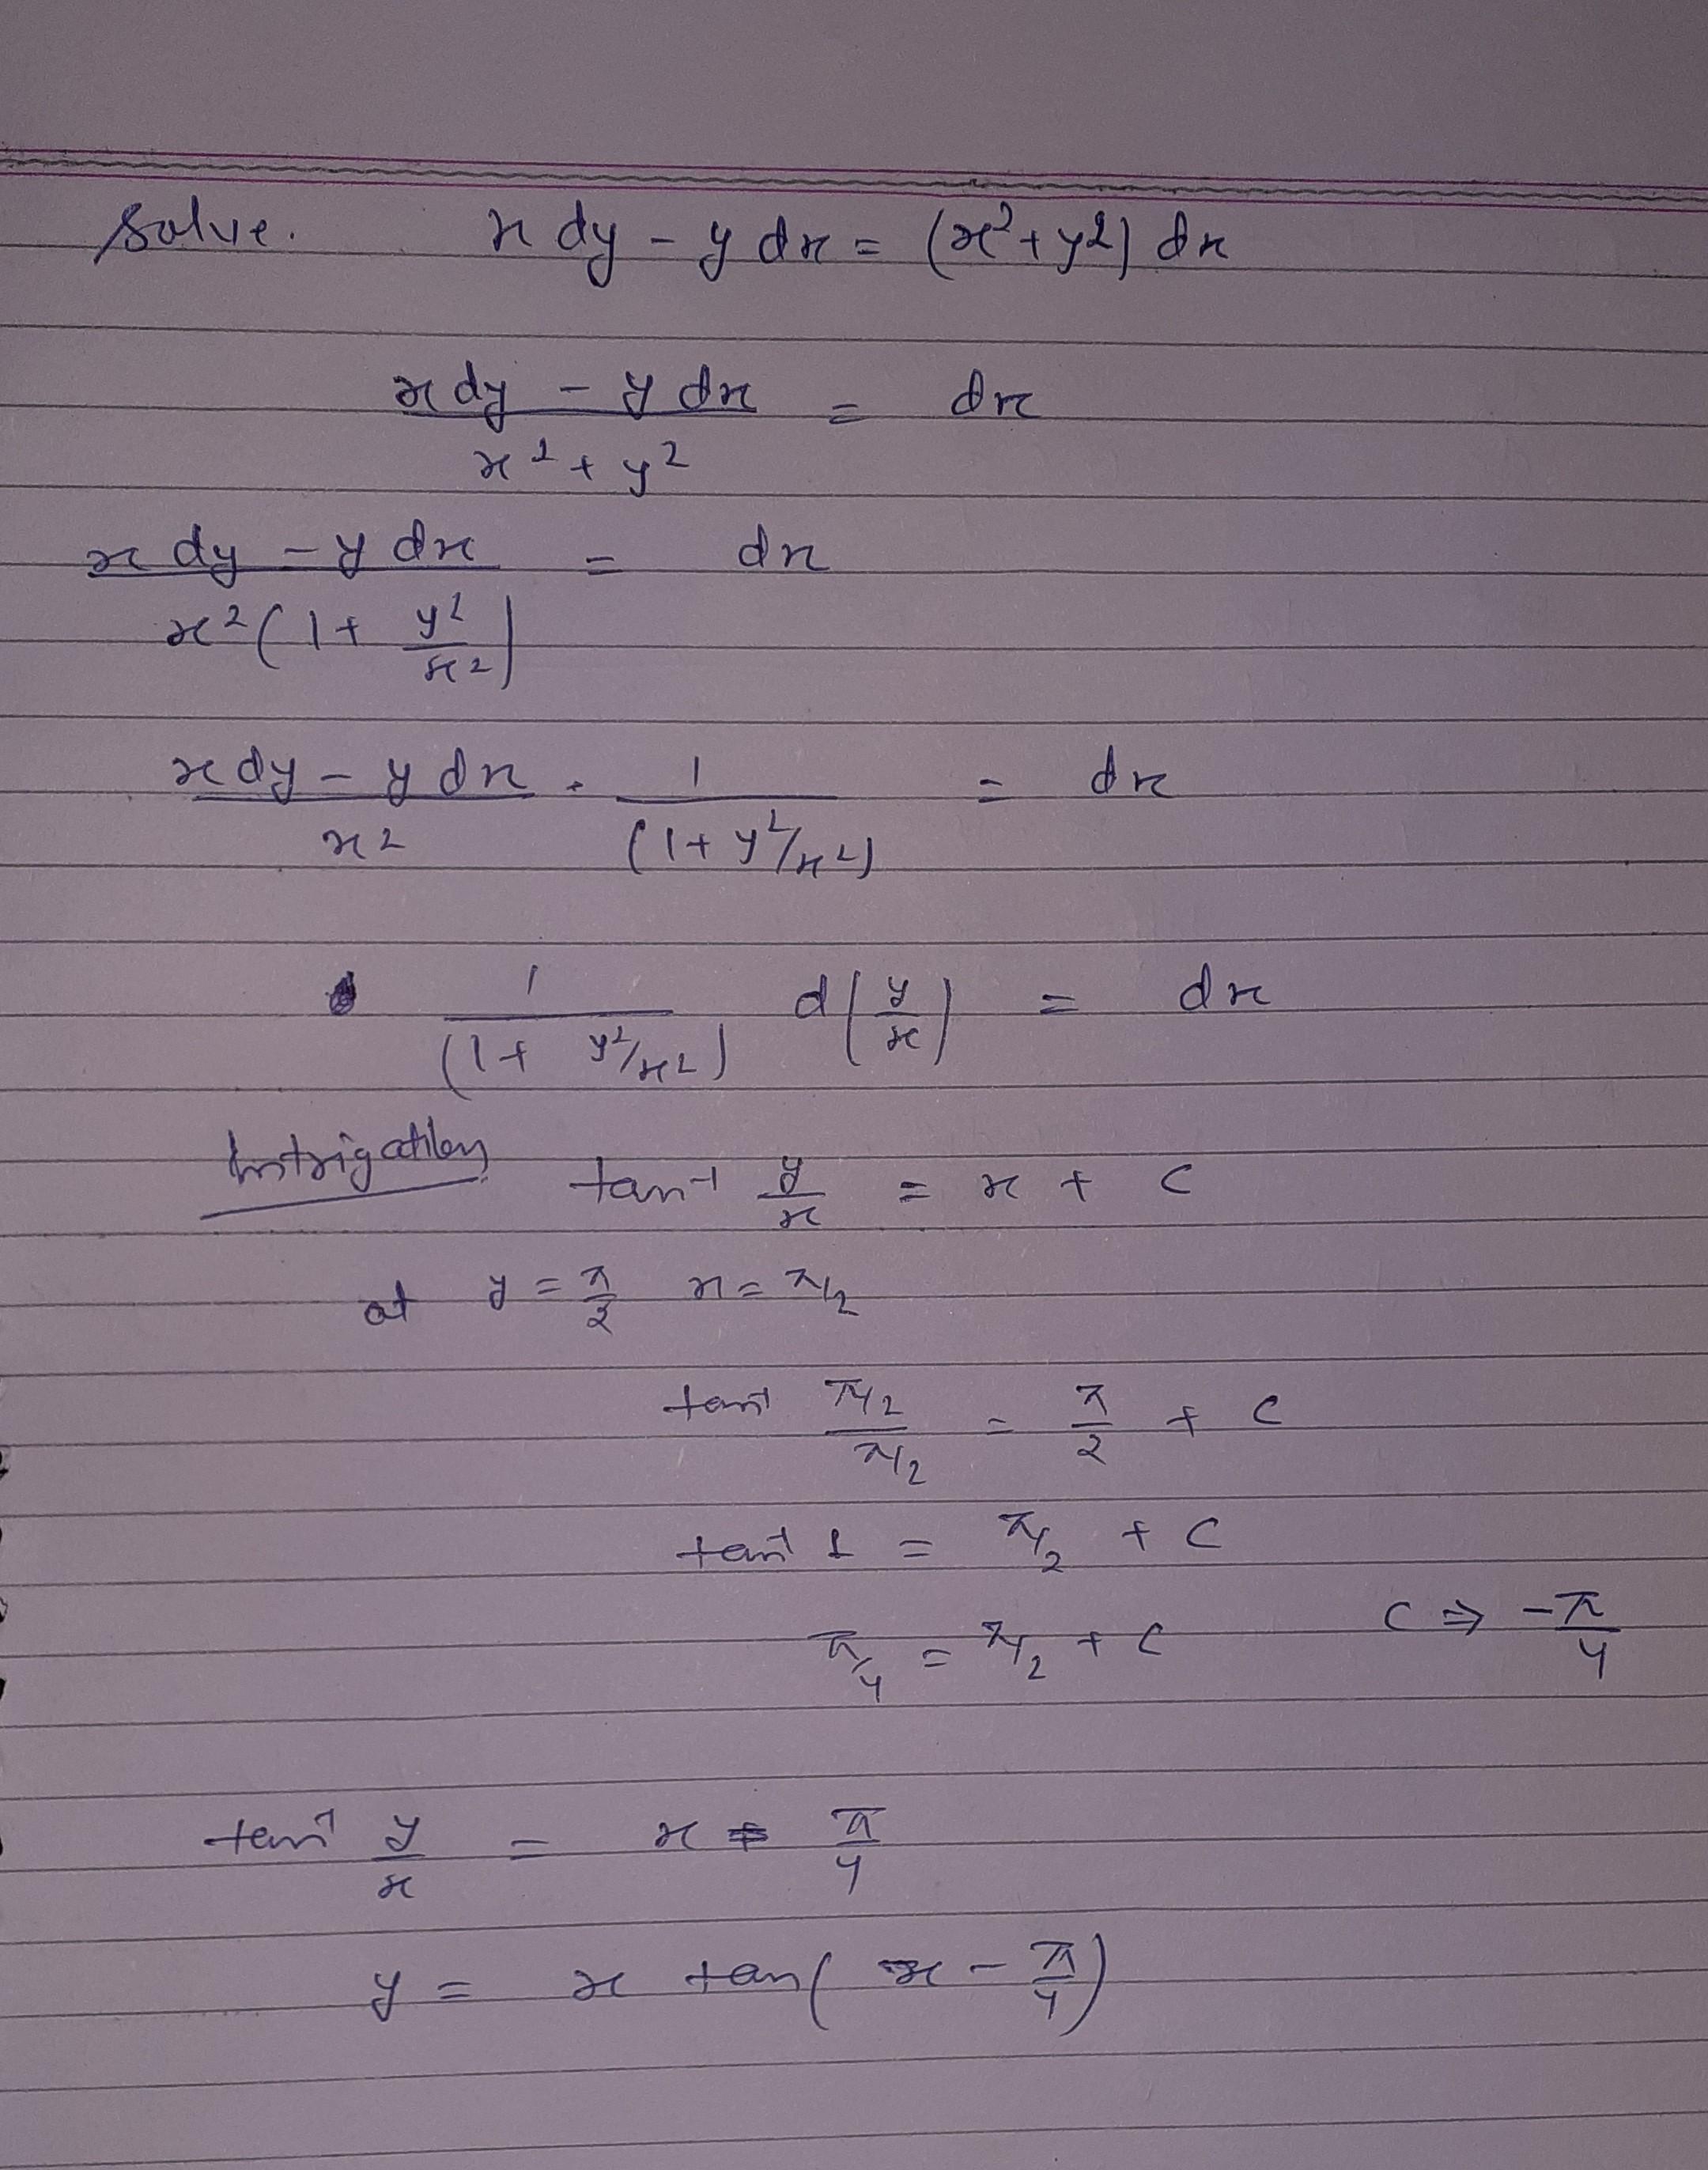 Solve. x dy - y dx = (x² + y²) dx
x dy - y dx / x² + y² = dx
x dy - y dx / x² (1 + y²/x²) = dx
x dy - y dx / x² . 1 / (1 + y²/x²) = dx
1 / (1 + y²/x²) d(y/x) = dx
Intrigation tan⁻¹ y/x = x + c
at y = π/2 x = π/2
tan⁻¹ π/2 / π/2 = π/2 + c
tan⁻¹ 1 = π/2 + c
π/4 = π/2 + c c ⇒ -π/4
tan⁻¹ y/x = x - π/4
y = x tan(x - π/4)